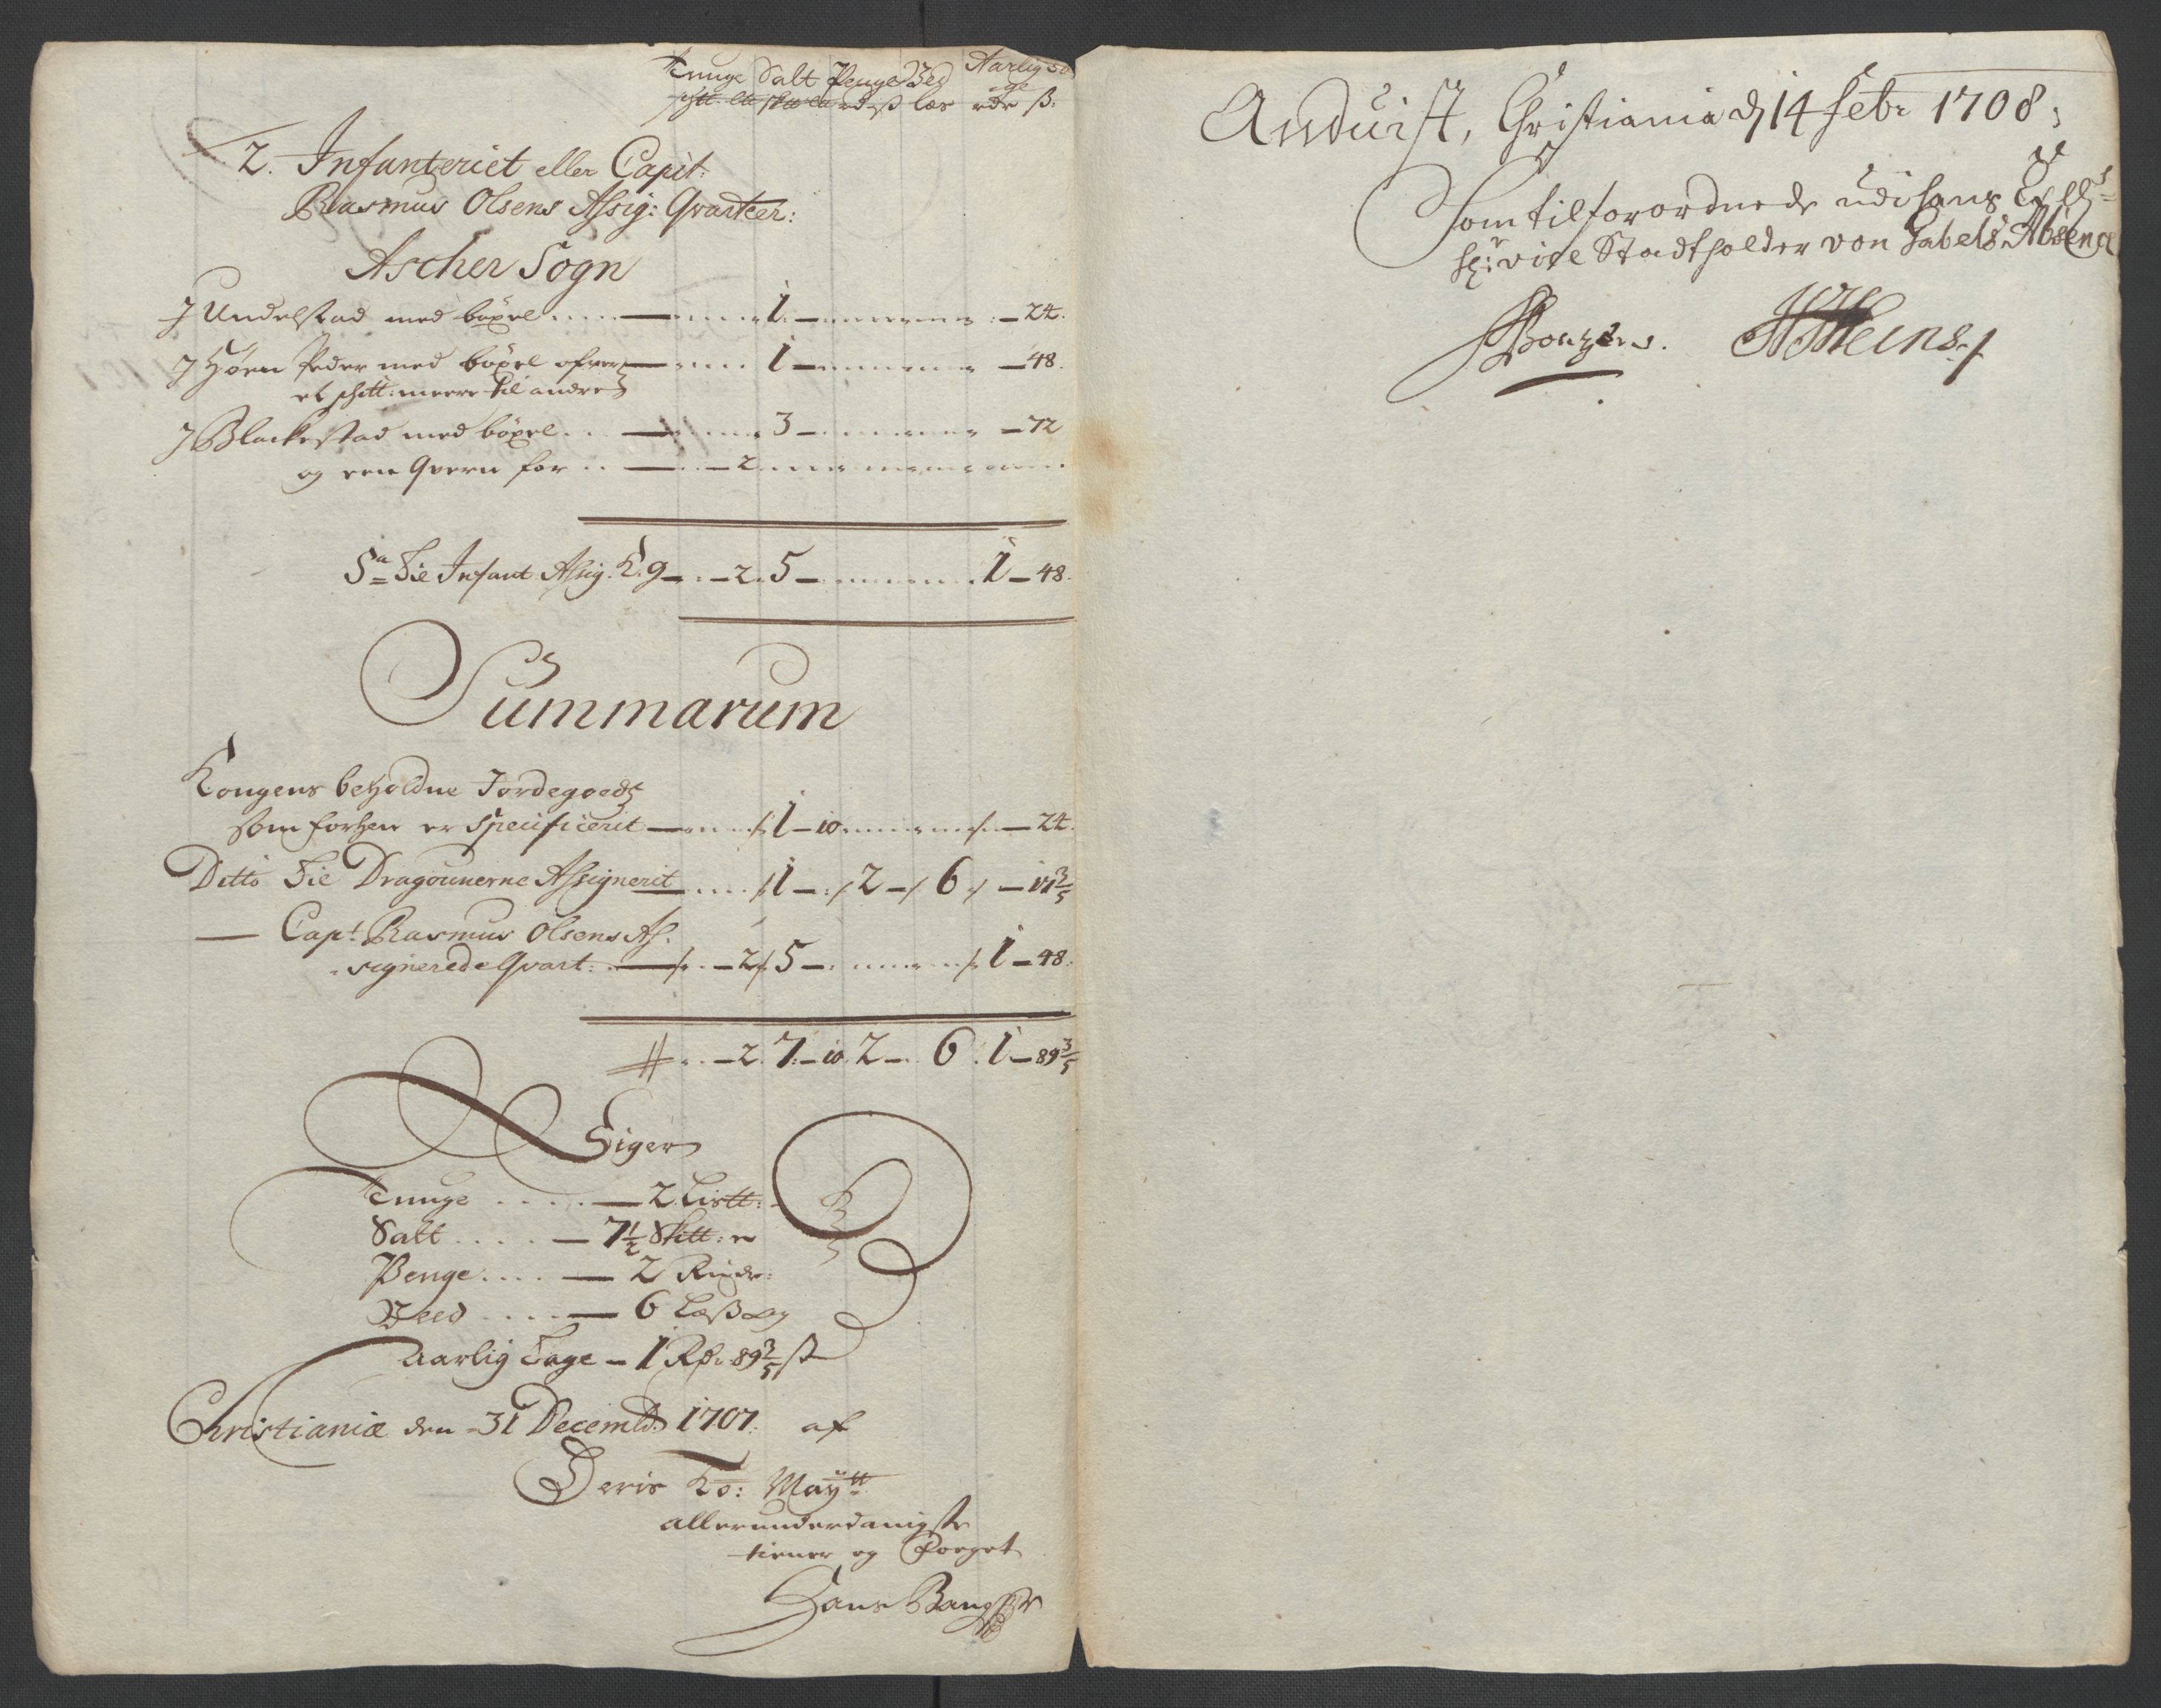 Tunge Salt Penge Ved Aarlig
læs rdr ß:
2. Infanteriet eller Capit:
Rasmus Olsens Assig: Qvarteer:
Ascher Sogn
J Undelstad med böxel ..... — 1 — — 24.
J Høen Peder med böxel ofver — 1 — — 48.
et schtt: meere til andre
J Blackestad med böxel .. — 3 — — 72
og een Qvern for .. — 2
Sa Til Infant Assig. K. 9 — 2. 5 — 1 — 48.
Summarum
Kongens beholdne Jordegoeds
som forhen er Specificerit — 1 — 10 — 24.
Ditto Til Dragounerne Assignerit — 1 — 2 — 6 — 17 3/5
— Capt Rasmus Olsens As-
signerede Qvart: — 2 5 — 1 — 48:
— 2. 7. — 10. 2 — 6. 1 — 89 3/5
Siger
Tunge ..... — 2. Listt:
Salt ..... — 7 1/2 Skitt:
Penge .... — 2 Rixdr:
Veed ..... — 6 Læß og
Aarlig Tage — 1 Rdr 89 3/5 ß
Christiania den 31 Decembr: 1707. af
Deris Ko: Maytt
allerunderdanigste
tiener og Foeget
Hans Bang
Anduist, Christiania d 14 Febr 1708;
Som tilforordnede udi hans Exell:
Hr: vice Stadtholder von Gabels Absence